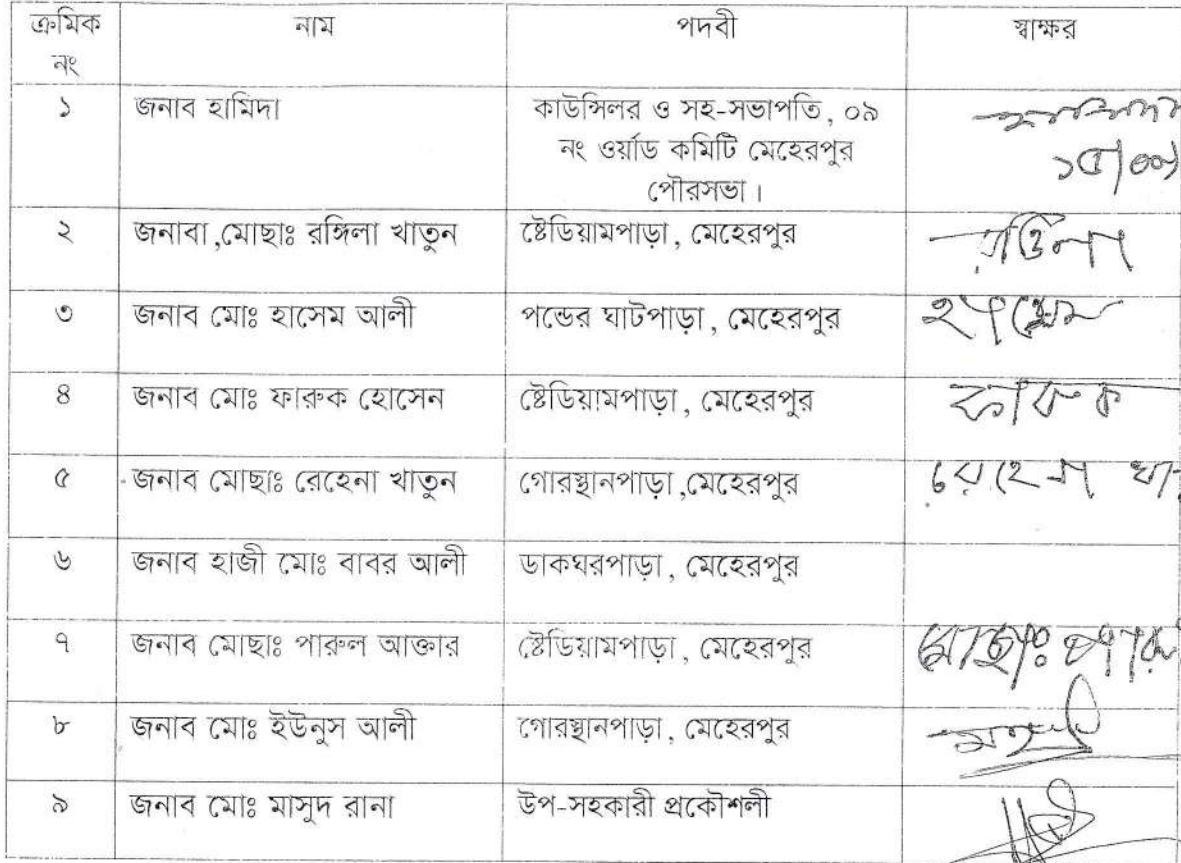 ক্রমিক নং নাম পদবী স্বাক্ষর
১ জনাব হামিদা কাউন্সিলর ও সহ-সভাপতি, ০৯
নং ওয়ার্ড কমিটি মেহেরপুর
পৌরসভা।
হামিদা
২ জনাবা,মোছাঃ রঙ্গিলা খাতুন ষ্টেডিয়ামপাড়া, মেহেরপুর
৩ জনাব মোঃ হাসেম আলী পন্ডের ঘাটপাড়া, মেহেরপুর হাসেম
৪ জনাব মোঃ ফারুক হোসেন ষ্টেডিয়ামপাড়া, মেহেরপুর ফারুক
৫ জনাব মোছাঃ রেহেনা খাতুন গোরস্থানপাড়া,মেহেরপুর রেহেনা খা
৬ জনাব হাজী মোঃ বাবর আলী ডাকঘরপাড়া, মেহেরপুর
৭ জনাব মোছাঃ পারুল আক্তার ষ্টেডিয়ামপাড়া, মেহেরপুর মোছাঃ পারু
৮ জনাব মোঃ ইউনুস আলী গোরস্থানপাড়া, মেহেরপুর
৯ জনাব মোঃ মাসুদ রানা উপ-সহকারী প্রকৌশলী